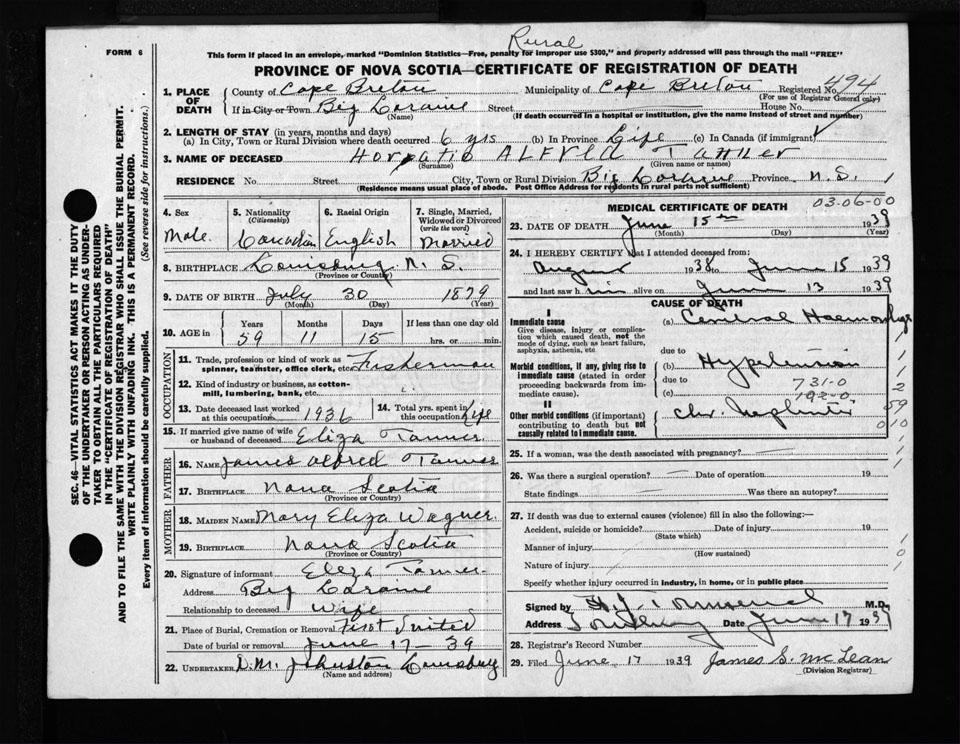 FORM 6
Rural
This form if placed in an envelope, marked "Dominion Statistics—Free, penalty for improper use $300," and properly addressed will pass through the mail "FREE"
PROVINCE OF NOVA SCOTIA—CERTIFICATE OF REGISTRATION OF DEATH
1. PLACE OF DEATH County of Cape Breton Municipality of Cape Breton Registered No. 494
(For use of Registrar General only)
If in City or Town Big Loraine Street House No.
(Name) (If death occurred in a hospital or institution, give the name instead of street and number)
2. LENGTH OF STAY (in years, months and days)
(a) In City, Town or Rural Division where death occurred 6 yrs (b) In Province Life (c) In Canada (if immigrant)
3. NAME OF DECEASED Horatio Alfred Tanner
(Surname) (Given name or names)
RESIDENCE No. Street City, Town or Rural Division Big Loraine Province N.S. 1
(Residence means usual place of abode. Post Office Address for residents in rural parts not sufficient)
4. Sex 5. Nationality (Citizenship) 6. Racial Origin 7. Single, Married, Widowed or Divorced (write the word)
Male Canadian English Married
8. BIRTHPLACE Louisburg N. S.
(Province or Country)
9. DATE OF BIRTH July 30 1879
(Month) (Day) (Year)
10. AGE in Years Months Days If less than one day old
59 11 15 hrs. or min.
OCCUPATION
11. Trade, profession or kind of work as spinner, teamster, office clerk, etc. Fisherman
12. Kind of industry or business, as cotton-mill, lumbering, bank, etc.
13. Date deceased last worked at this occupation 1936 14. Total yrs. spent in this occupation Life
15. If married give name of wife or husband of deceased Eliza Tanner
FATHER
16. NAME James Alfred Tanner
17. BIRTHPLACE Nova Scotia
(Province or Country)
MOTHER
18. MAIDEN NAME Mary Eliza Wagner
19. BIRTHPLACE Nova Scotia
(Province or Country)
20. Signature of informant Eliza Tanner
Address Big Loraine
Relationship to deceased Wife
21. Place of Burial, Cremation or Removal First United
Date of burial or removal June 17 - 39
22. UNDERTAKER D.M. Johnston Louisburg
(Name and address)
MEDICAL CERTIFICATE OF DEATH
03-06-00
23. DATE OF DEATH June 15th 1939
(Month) (Day) (Year)
24. I HEREBY CERTIFY that I attended deceased from:
August 1938 to June 15 1939
and last saw him alive on June 13 1939
CAUSE OF DEATH
I
Immediate cause (a) Cerebral Haemorrhage
Give disease, injury or complication which caused death, not the mode of dying, such as heart failure, asphyxia, asthenia, etc
due to
Morbid conditions, if any, giving rise to immediate cause (stated in order proceeding backwards from immediate cause).
(b) Hypertension
due to 731-0
(c) 192-0
II
Other morbid conditions (if important) contributing to death but not causally related to immediate cause.
Chr. Nephritis
25. If a woman, was the death associated with pregnancy?
26. Was there a surgical operation? Date of operation 19
State findings Was there an autopsy?
27. If death was due to external causes (violence) fill in also the following:—
Accident, suicide or homicide? Date of injury 19
(State which)
Manner of injury
(How sustained)
Nature of injury
Specify whether injury occurred in industry, in home, or in public place
Signed by M.D.
Address Date June 17 1939
28. Registrar's Record Number
29. Filed June 17 1939 James S. McLean
(Division Registrar)
SEC. 46—VITAL STATISTICS ACT MAKES IT THE DUTY
OF THE UNDERTAKER OR PERSON ACTING AS UNDER-
TAKER TO OBTAIN ALL THE PARTICULARS REQUIRED
IN THE "CERTIFICATE OF REGISTRATION OF DEATH"
AND TO FILE THE SAME WITH THE DIVISION REGISTRAR WHO SHALL ISSUE THE BURIAL PERMIT.
WRITE PLAINLY WITH UNFADING INK. THIS IS A PERMANENT RECORD.
Every item of information should be carefully supplied. (See reverse side for instructions.)